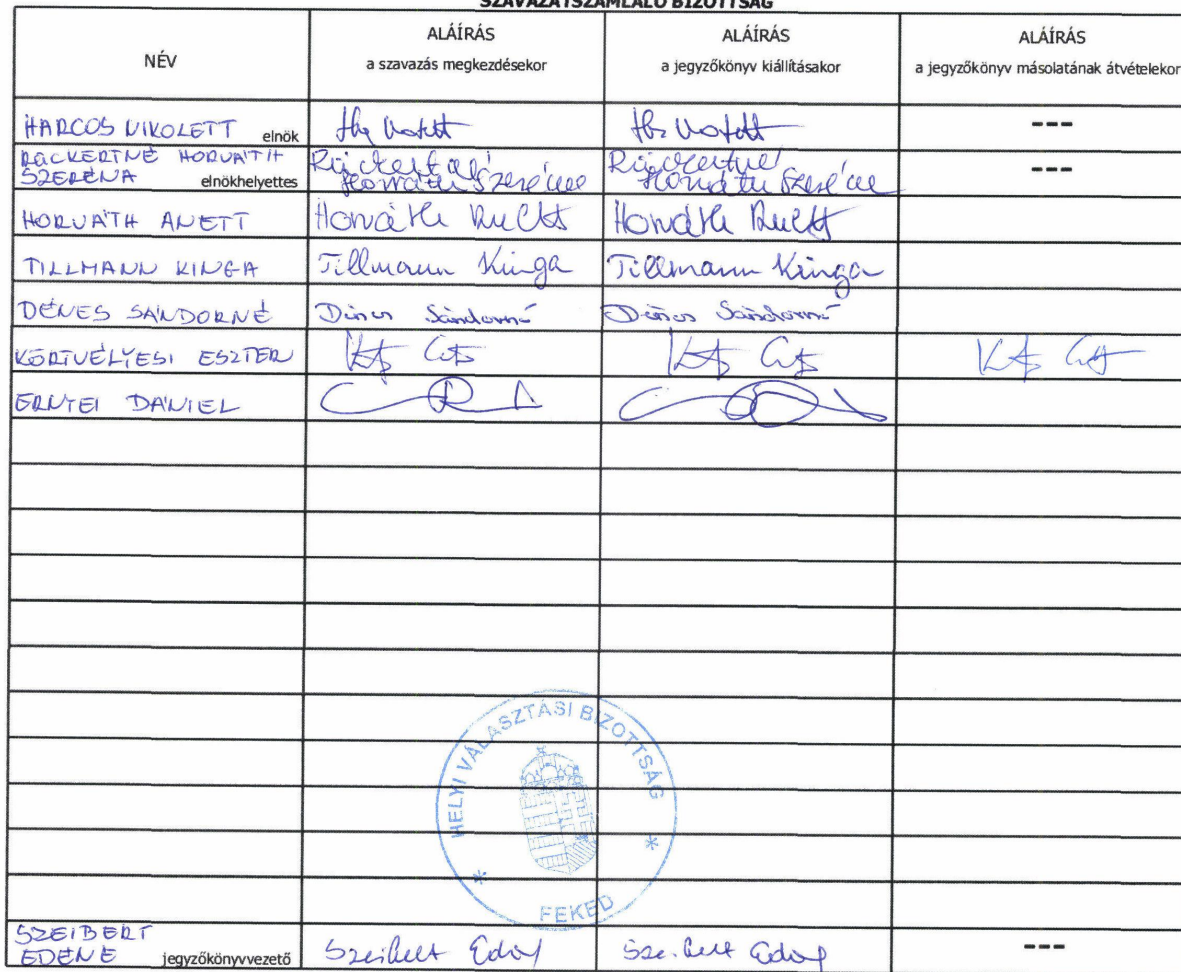 SZAVAZATSZÁMLÁLÓ BIZOTTSÁG
NÉV
ALÁÍRÁS
a szavazás megkezdésekor
ALÁÍRÁS
a jegyzőkönyv kiállításakor
ALÁÍRÁS
a jegyzőkönyv másolatának átvételekor
HARCOS NIKOLETT elnök
---
RÜCKERTNÉ HORVÁTH
SZERÉNA elnökhelyettes
Rückertné
Horváth Szeréna
Rückertné
Horváth Szeréna
---
HORVÁTH ANETT Horváth Anett Horváth Anett
TILLMANN KINGA Tillmann Kinga Tillmann Kinga
DÉNES SÁNDORNÉ Dénes Sándorné Dénes Sándorné
KÖRTVÉLYESI ESZTER
ERNYEI DÁNIEL
HELYI VÁLASZTÁSI BIZOTTSÁG
* FEKED *
SZEIBERT
EDÉNÉ jegyzőkönyvvezető
Szeibert Szeibert
---